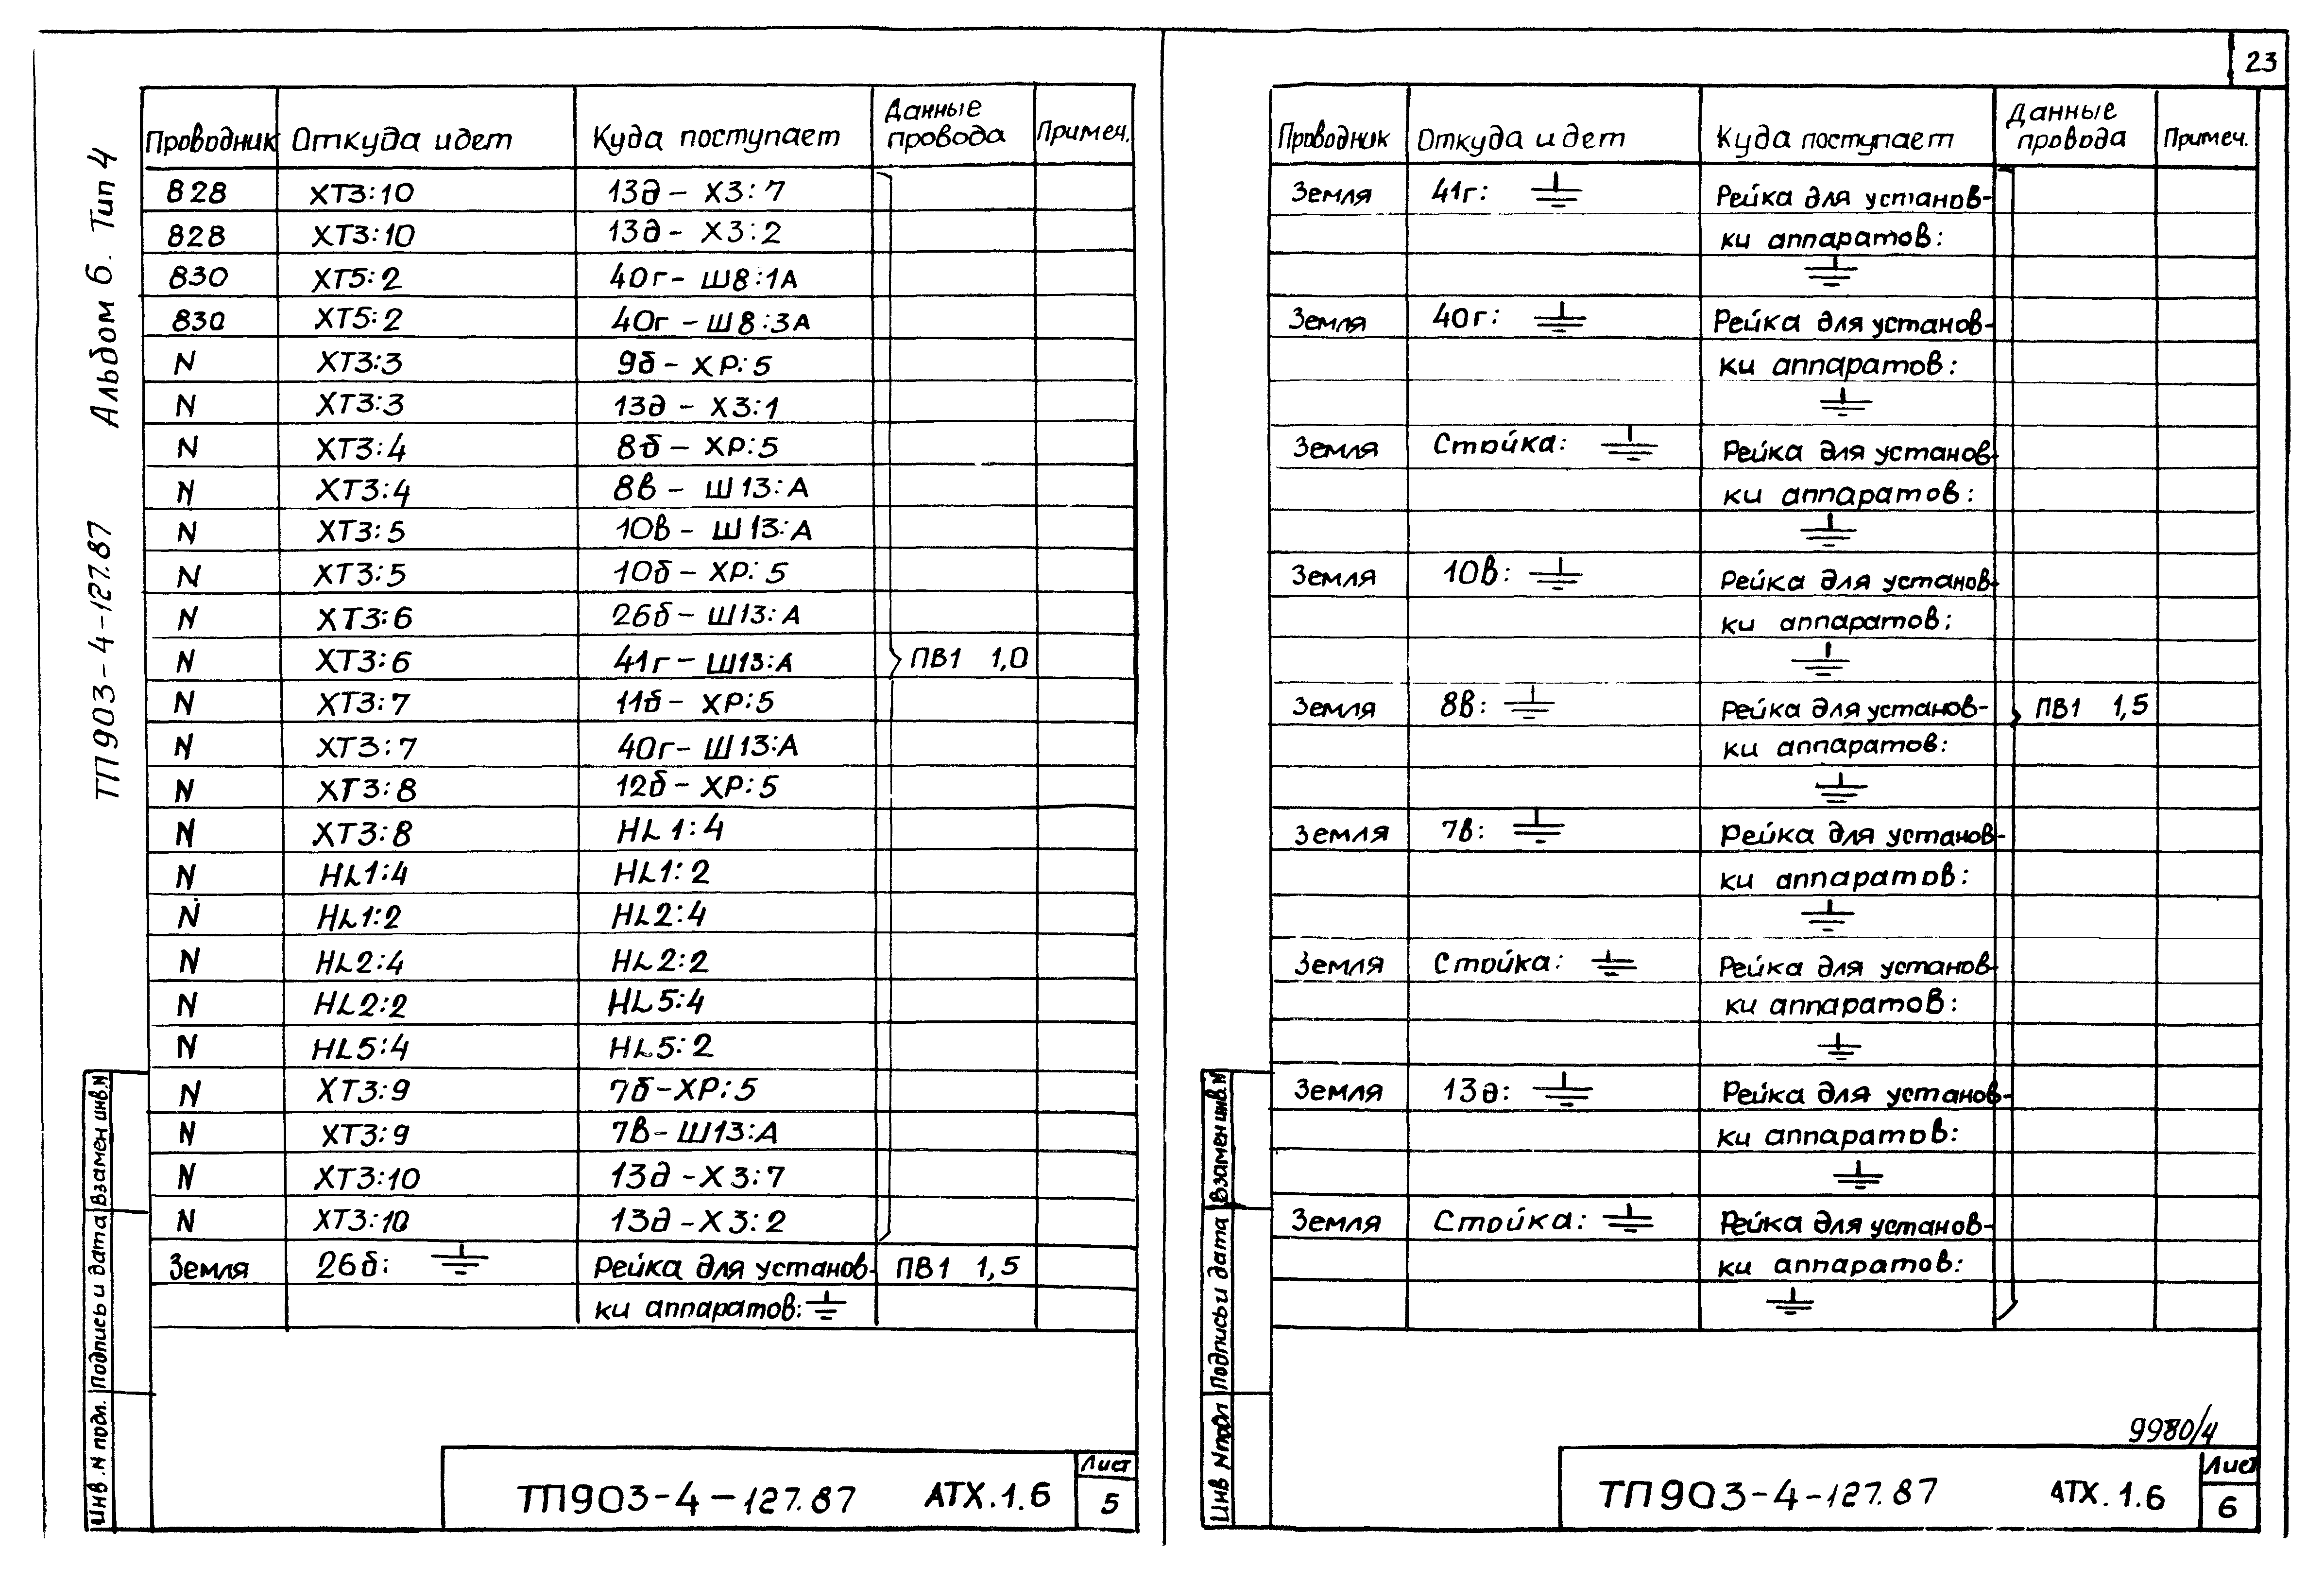 23
ТП903-4-127.87 Альбом 6. Тип 4
Проводник Откуда идет Куда поступает Данные провода Примеч.
828 ХТ3:10 13д - Х3:7
828 ХТ3:10 13д - Х3:2
830 ХТ5:2 40г - Ш8:1А
830 ХТ5:2 40г - Ш8:3А
N ХТ3:3 9б - ХР:5
N ХТ3:3 13д - Х3:1
N ХТ3:4 8б - ХР:5
N ХТ3:4 8в - Ш13:А
N ХТ3:5 10в - Ш13:А
N ХТ3:5 10б - ХР:5
N ХТ3:6 26б - Ш13:А
N ХТ3:6 41г - Ш13:А ПВ1 1,0
N ХТ3:7 11б - ХР:5
N ХТ3:7 40г - Ш13:А
N ХТ3:8 12б - ХР:5
N ХТ3:8 HL1:4
N HL1:4 HL1:2
N HL1:2 HL2:4
N HL2:4 HL2:2
N HL2:2 HL5:4
N HL5:4 HL5:2
N ХТ3:9 7б - ХР:5
N ХТ3:9 7в - Ш13:А
N ХТ3:10 13д - Х3:7
N ХТ3:10 13д - Х3:2
Земля 26б: ⏚ Рейка для установ- ПВ1 1,5
ки аппаратов: ⏚
Инв. N подл. Подпись и дата Взамен инв. N
ТП903-4-127.87 АТХ.1.6 Лист
5
Проводник Откуда идет Куда поступает Данные провода Примеч.
Земля 41г: ⏚ Рейка для установ-
ки аппаратов:
⏚
Земля 40г: ⏚ Рейка для установ-
ки аппаратов:
⏚
Земля Стойка: ⏚ Рейка для установ-
ки аппаратов:
⏚
Земля 10в: ⏚ Рейка для установ-
ки аппаратов:
⏚
Земля 8в: ⏚ Рейка для установ- ПВ1 1,5
ки аппаратов:
⏚
Земля 7в: ⏚ Рейка для установ-
ки аппаратов:
⏚
Земля Стойка: ⏚ Рейка для установ-
ки аппаратов:
⏚
Земля 13д: ⏚ Рейка для установ-
ки аппаратов:
⏚
Земля Стойка: ⏚ Рейка для установ-
ки аппаратов:
⏚
Инв N подл Подпись и дата Взамен инв. N
9980/4
ТП903-4-127.87 АТХ.1.6 Лист
6